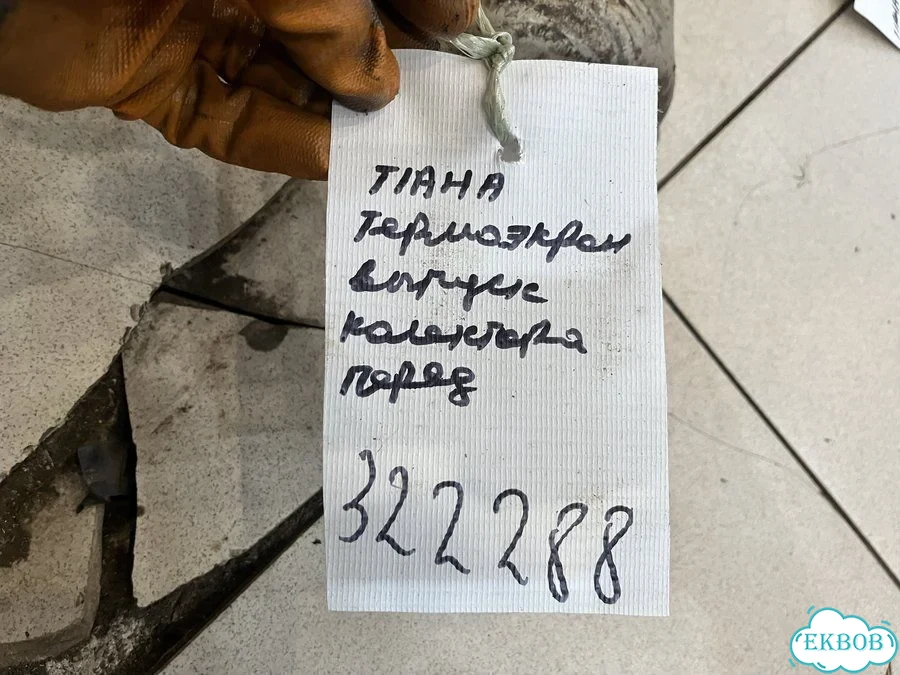 ТІАНА
термоэкран
выпуск
колектора
перед
322288
EKBOB